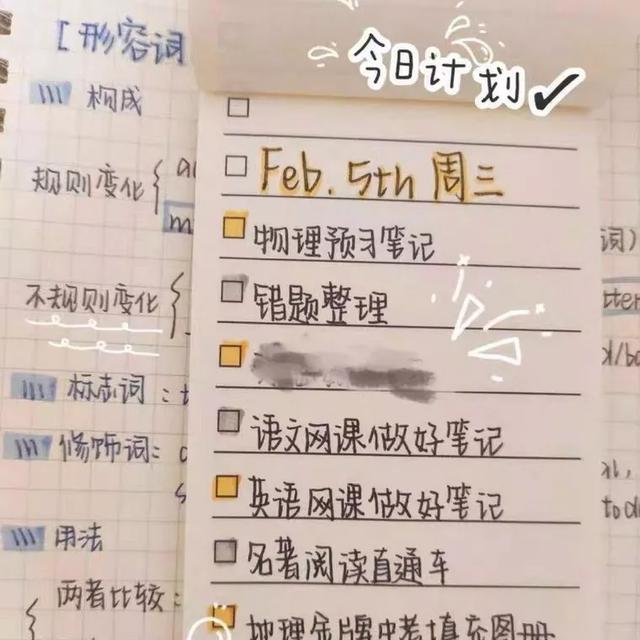 今日计划
Feb. 5th 周三
物理预习笔记
错题整理
语文网课做好笔记
英语网课做好笔记
名著阅读直通车
地理金牌中考填充图册
[形容词
构成
规则变化
不规则变化
标志词:
修饰词:
用法
两者比较:
词)